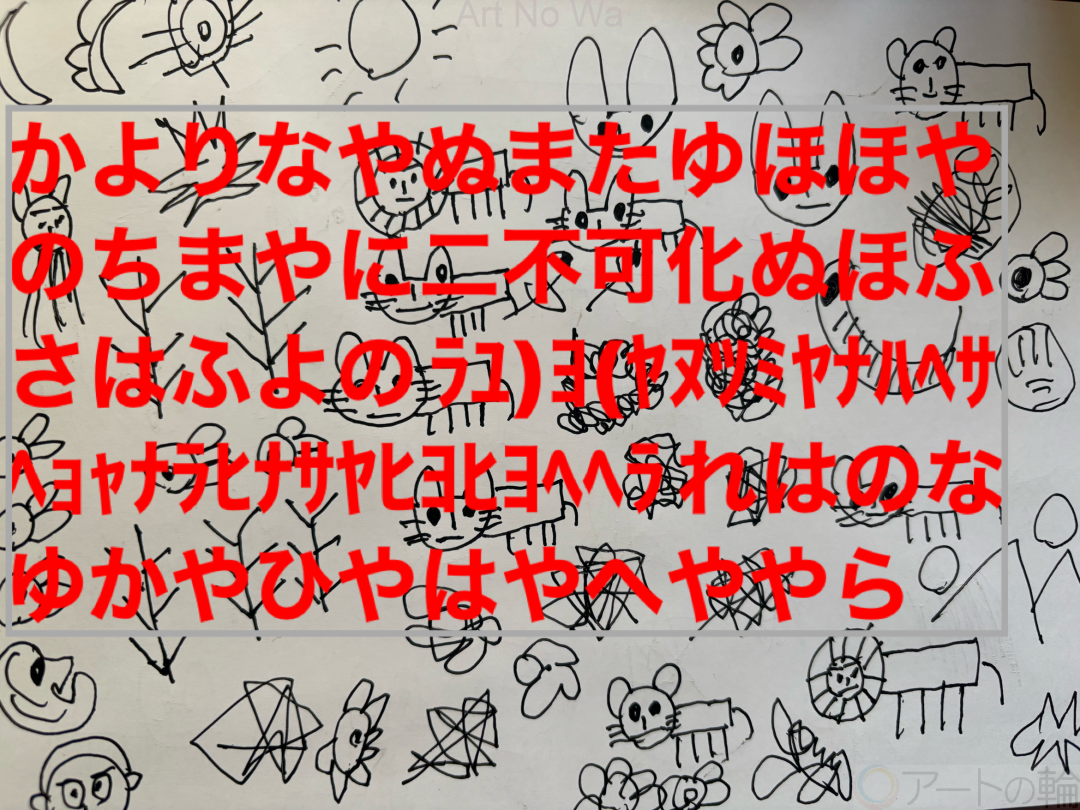 Art No Wa
かよりなやぬまたゆほほや
のちまやに二不可化ぬほふ
さはふよのﾗﾕ)ﾖ(ﾔﾇﾂﾐﾔﾅﾙﾍｻ
ﾍｮｬﾅﾗﾋﾅｻﾔﾋﾖﾋﾖﾍﾍﾗれはのな
ゆかやひやはやへややら
アートの輪